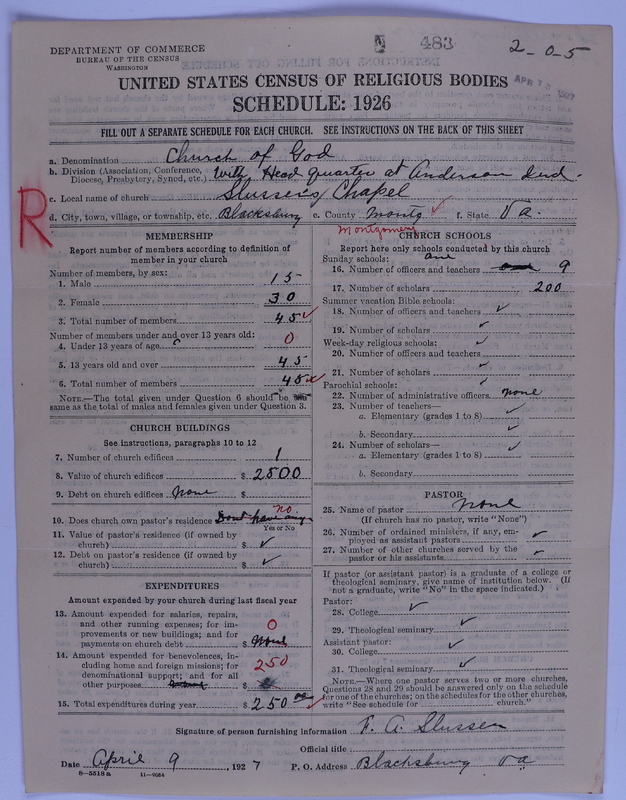 483
2-0-5
DEPARTMENT OF COMMERCE
BUREAU OF THE CENSUS
WASHINGTON
APR
UNITED STATES CENSUS OF RELIGIOUS BODIES
SCHEDULE: 1926
FILL OUT A SEPARATE SCHEDULE FOR EACH CHURCH. SEE INSTRUCTIONS ON THE BACK OF THIS SHEET
a. Denomination Church of God
b. Division (Association, Conference, Diocese, Presbytery, Synod, etc.) With Head quarter at Anderson Ind.
c. Local name of church Slussers Chapel
R
d. City, town, village, or township, etc. Blacksburg e. County Montg ✓ f. State Va.
Montgomery
MEMBERSHIP
Report number of members according to definition of
member in your church
Number of members, by sex:
1. Male 15
2. Female 30
3. Total number of members 45 ✓
Number of members under and over 13 years old:
4. Under 13 years of age 0
5. 13 years old and over 45
6. Total number of members 45 ✓
NOTE.—The total given under Question 6 should be the
same as the total of males and females given under Question 3.
CHURCH BUILDINGS
See instructions, paragraphs 10 to 12
7. Number of church edifices 1
8. Value of church edifices $ 2500
9. Debt on church edifices None $
10. Does church own pastor's residence Dont have any no
Yes or No
11. Value of pastor's residence (if owned by
church) $ ✓
12. Debt on pastor's residence (if owned by
church) $ ✓
EXPENDITURES
Amount expended by your church during last fiscal year
13. Amount expended for salaries, repairs,
and other running expenses; for im-
provements or new buildings; and for
payments on church debt $ None 0
14. Amount expended for benevolences, in-
cluding home and foreign missions; for
denominational support; and for all
other purposes $ 250
15. Total expenditures during year $ 250 00 ✓
CHURCH SCHOOLS
Report here only schools conducted by this church
Sunday schools: one
16. Number of officers and teachers 9
17. Number of scholars 200
Summer vacation Bible schools:
18. Number of officers and teachers ✓
19. Number of scholars ✓
Week-day religious schools: ✓
20. Number of officers and teachers
21. Number of scholars ✓
Parochial schools: ✓
22. Number of administrative officers none
23. Number of teachers—
a. Elementary (grades 1 to 8) ✓
b. Secondary ✓
24. Number of scholars— ✓
a. Elementary (grades 1 to 8)
b. Secondary
PASTOR
25. Name of pastor none
(If church has no pastor, write "None")
26. Number of ordained ministers, if any, em-
ployed as assistant pastors ✓
27. Number of other churches served by the
pastor or his assistants ✓
If pastor (or assistant pastor) is a graduate of a college or
theological seminary, give name of institution below. (If
not a graduate, write "No" in the space indicated.)
Pastor:
28. College ✓
29. Theological seminary ✓
Assistant pastor:
30. College ✓
31. Theological seminary ✓
NOTE.—Where one pastor serves two or more churches,
Questions 28 and 29 should be answered only on the schedule
for one of the churches; on the schedules for the other churches,
write "See schedule for church."
Signature of person furnishing information F. A. Slusser
Official title
Date April 9, 1927 P. O. Address Blacksburg Va
8—5518 a 11—9054